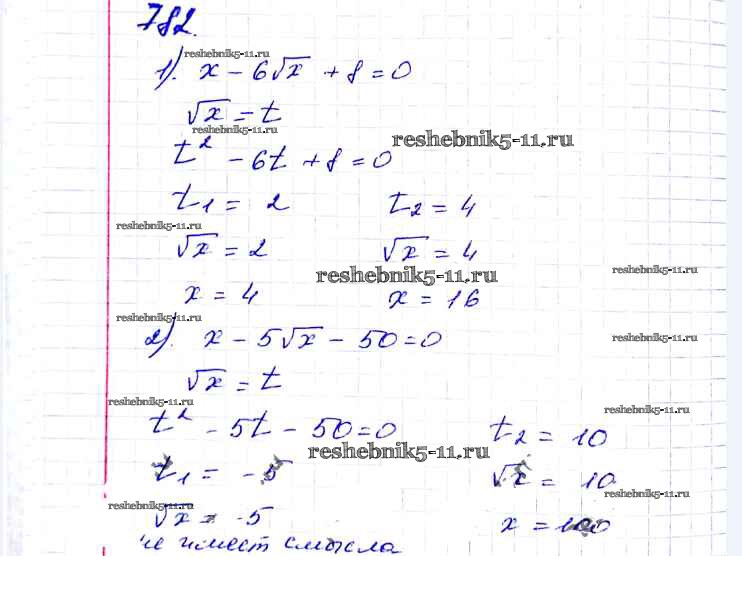 782.
reshebnik5-11.ru
1). x - 6√x + 8 = 0
√x = t
reshebnik5-11.ru
reshebnik5-11.ru
t² - 6t + 8 = 0
t₁ = 2 t₂ = 4
reshebnik5-11.ru
√x = 2 √x = 4
reshebnik5-11.ru reshebnik5-11.ru
x = 4 x = 16
reshebnik5-11.ru
2). x - 5√x - 50 = 0 reshebnik5-11.ru
√x = t
reshebnik5-11.ru reshebnik5-11.ru
t² - 5t - 50 = 0 t₂ = 10
reshebnik5-11.ru
t₁ = -5 √x = 10
reshebnik5-11.ru reshebnik5-11.ru
√x = -5 x = 100
не имеет смысла